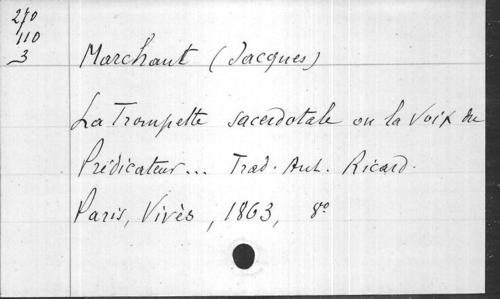 270
110
3
Marchant (Jacques)
La Trompette sacerdotale ou la Voix du
Prédicateur... Trad. Ant. Ricard.
Paris, Vivès, 1863, 8º